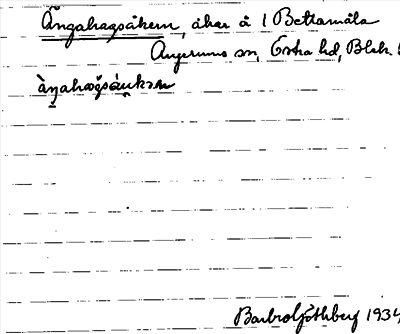 Ängahagsåkern, åker å 1 Bettamåla
Augerums sn, Östra hd, Blek. l
Barbro Göthberg 1934